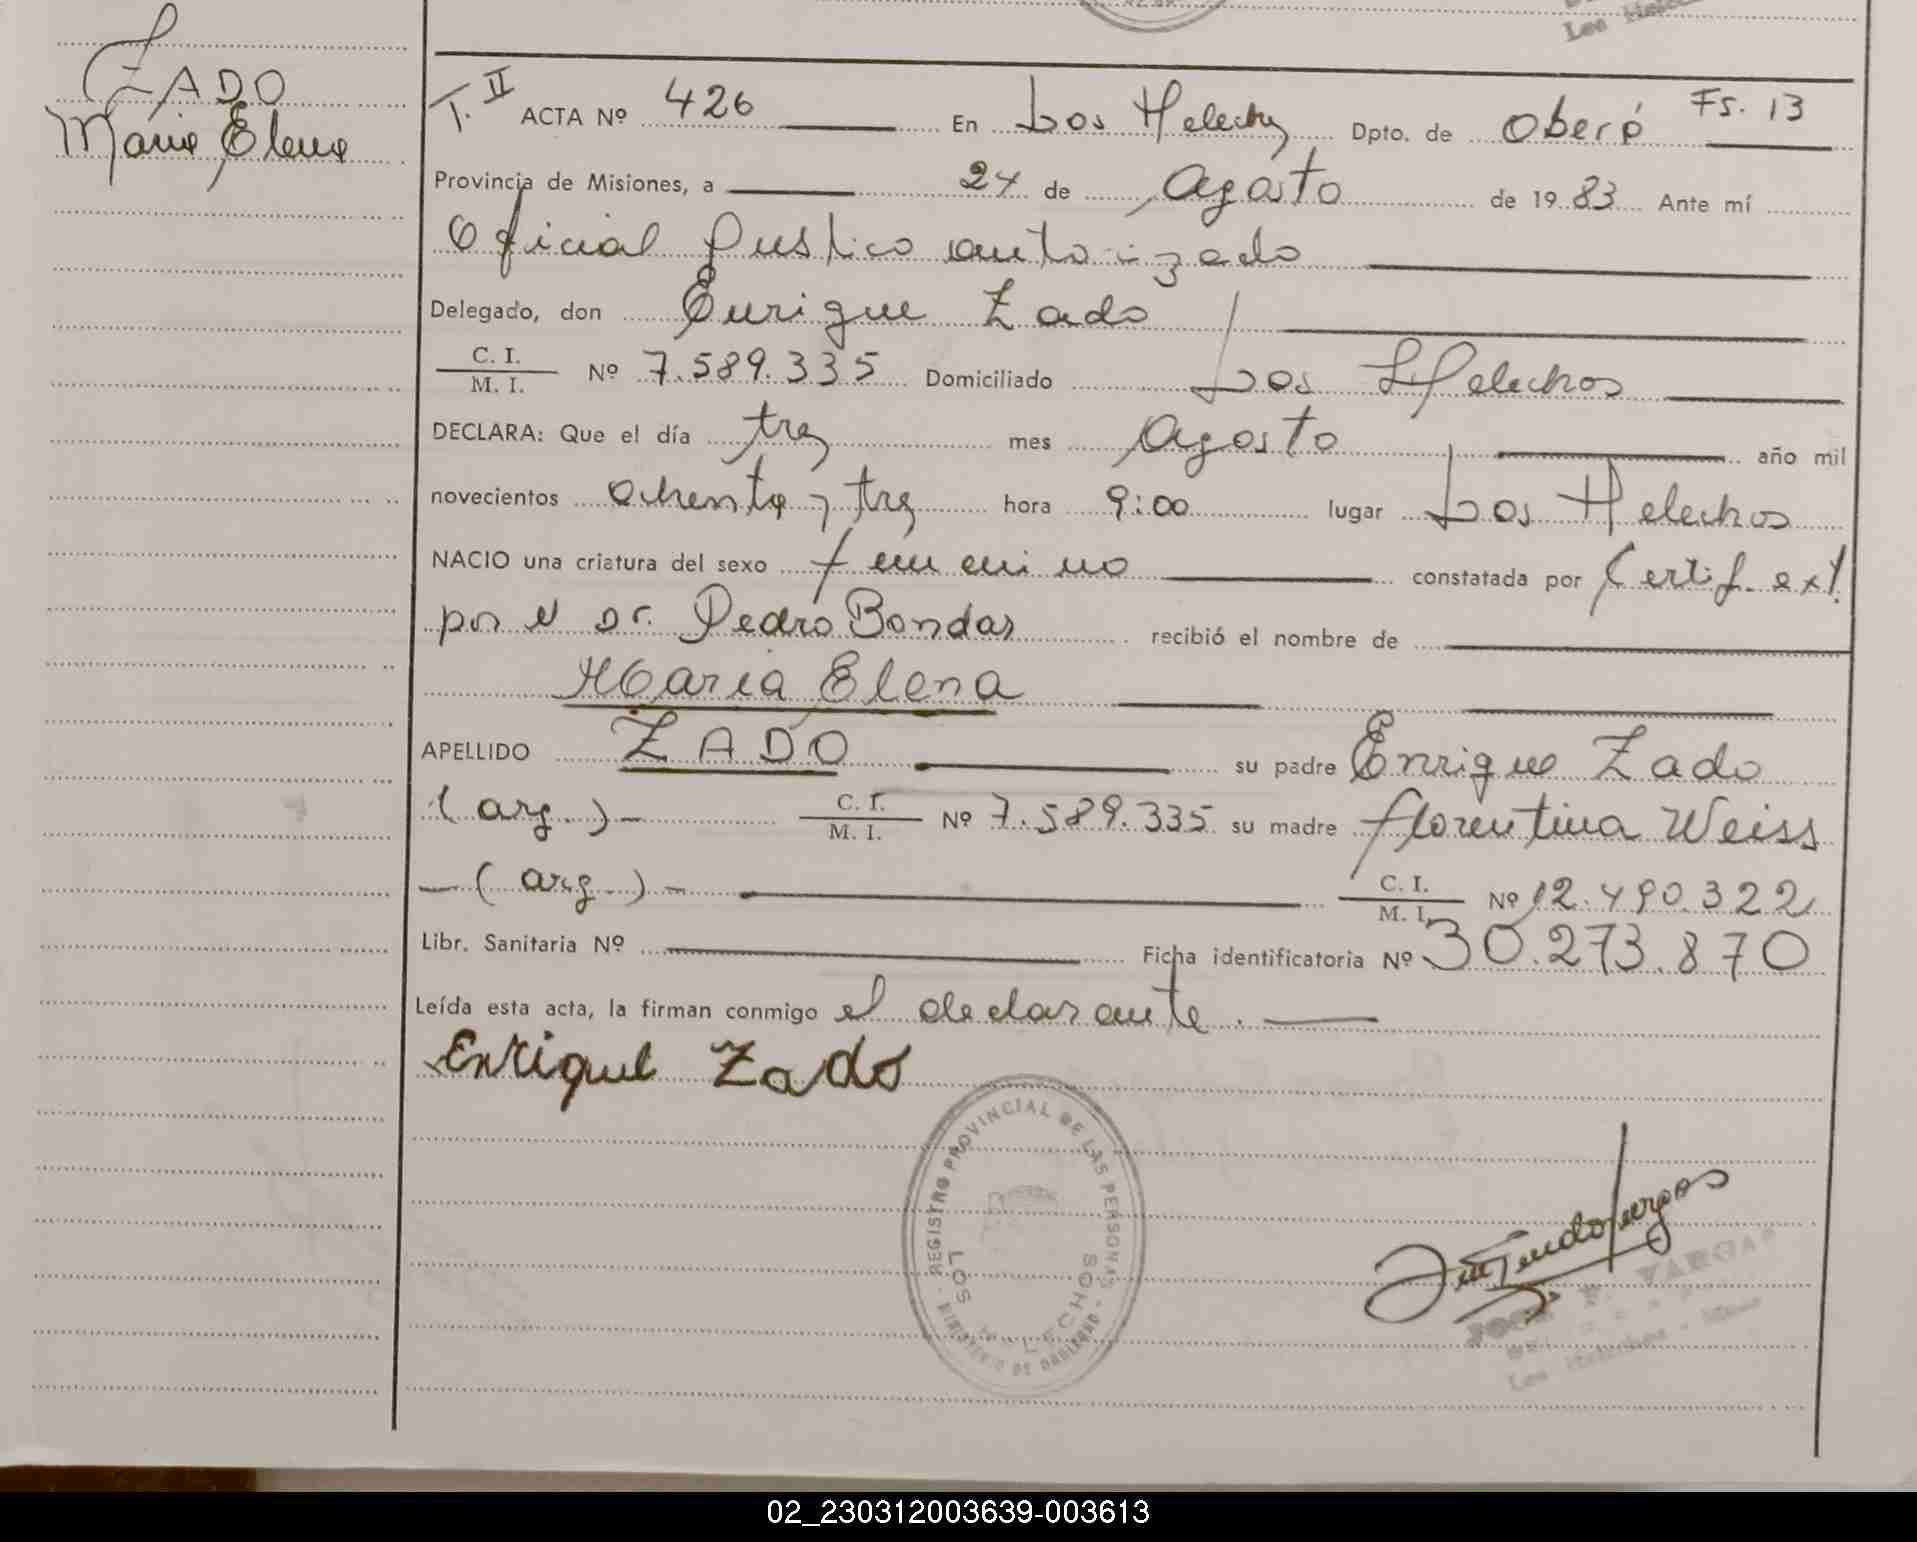 ZADO
Maria Elena
T. II ACTA Nº 426 En Los Helechos Dpto. de Oberá Fs. 13
Provincia de Misiones, a 24 de Agosto de 1983 Ante mí
Oficial Publico autorizado
Delegado, don Enrique Zado
C. I. / M. I. Nº 7.589.335 Domiciliado Los Helechos
DECLARA: Que el día tres mes Agosto año mil
novecientos ochenta y tres hora 9:00 lugar Los Helechos
NACIO una criatura del sexo femenino constatada por Certif. ext.
por el Dr. Pedro Bondar recibió el nombre de
Maria Elena
APELLIDO ZADO su padre Enrique Zado
(arg.) - C. I. / M. I. Nº 7.589.335 su madre Florentina Weiss
- (arg.) - C. I. / M. I. Nº 12.490.322
Libr. Sanitaria Nº Ficha identificatoria Nº 30.273.870
Leída esta acta, la firman conmigo el declarante.
Enrique Zado
REGISTRO PROVINCIAL DE LAS PERSONAS - MINISTERIO DE GOBIERNO -
LOS HELECHOS
VARGAS
Los Helechos
02_230312003639-003613